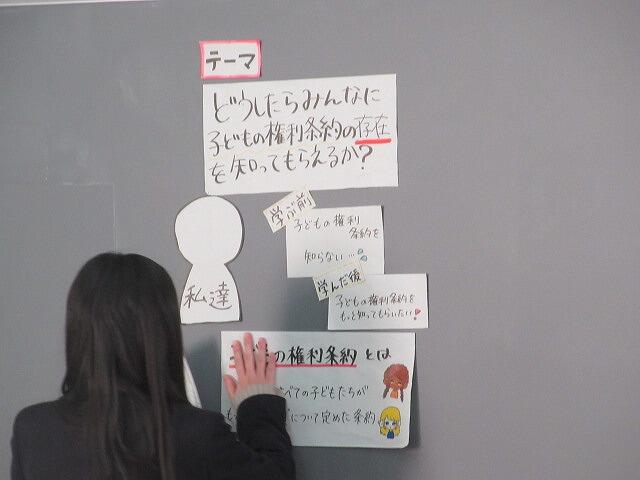 テーマ
どうしたらみんなに
子どもの権利条約の存在
を知ってもらえるか?
学ぶ前
子どもの権利
条約を
知らない…
私達
学んだ後
子どもの権利条約を
もっと知ってもらいたい!
の権利条約とは
べての子どもたちが
について定めた条約